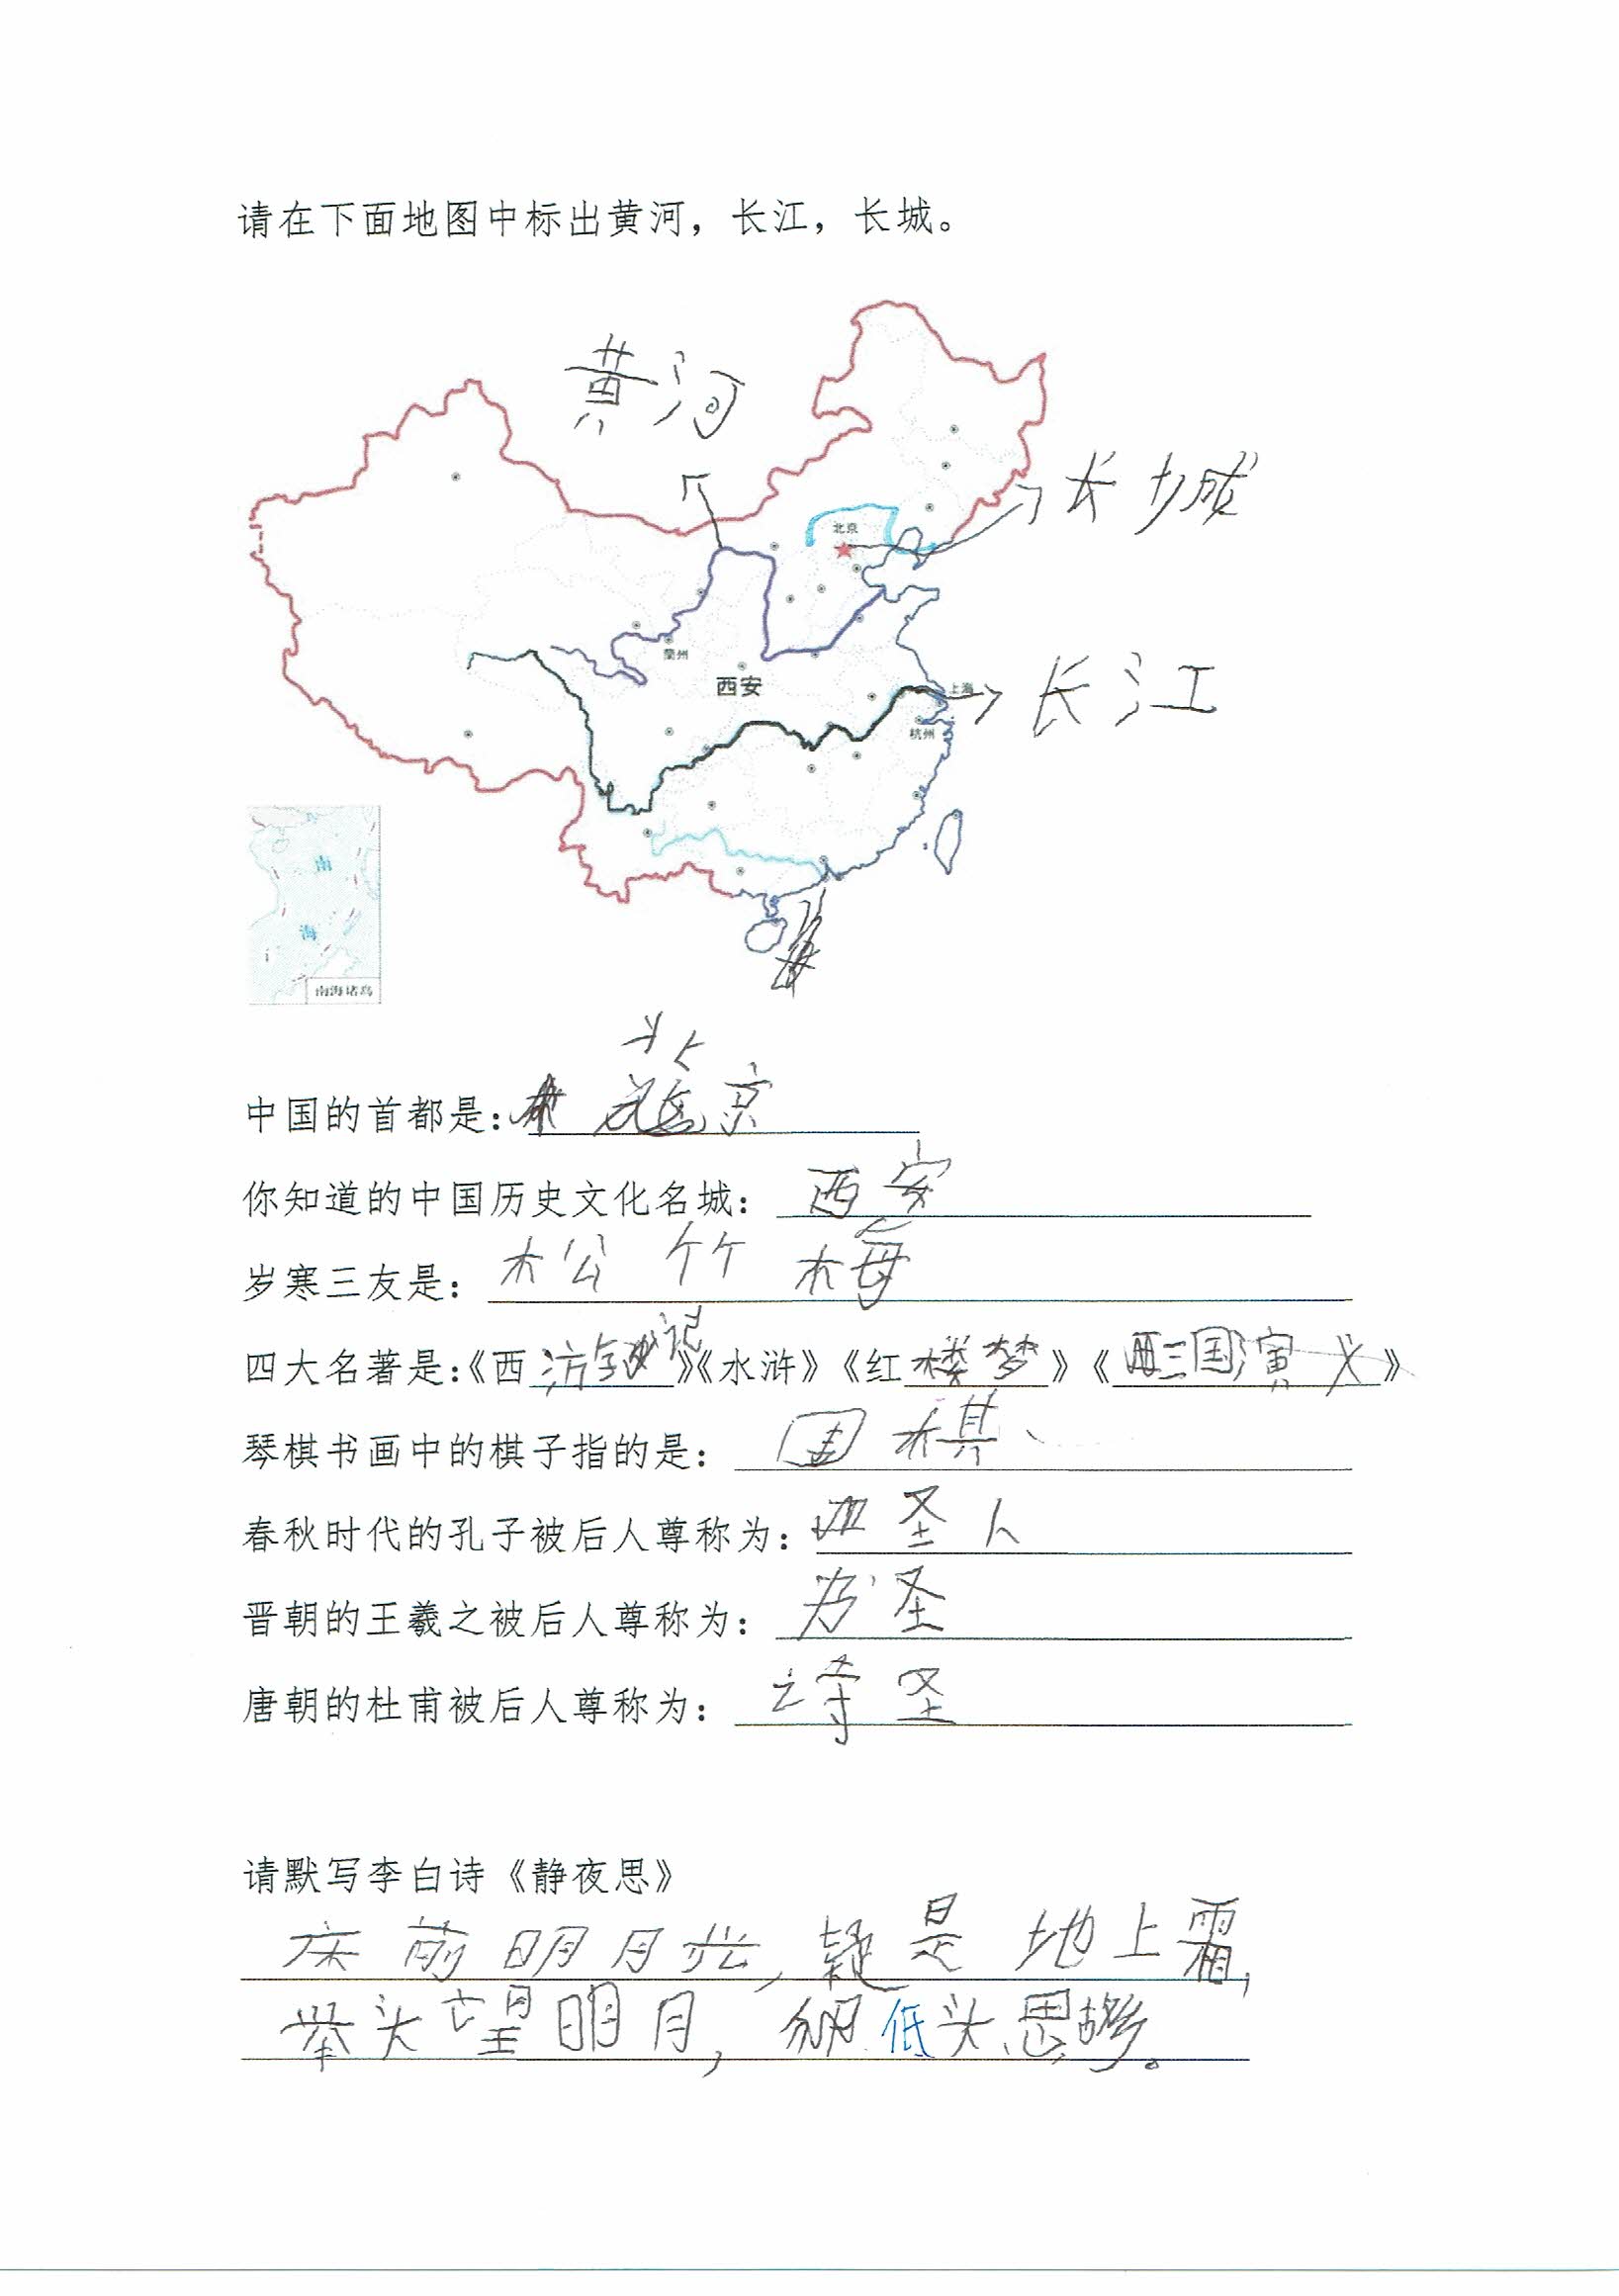 请在下面地图中标出黄河，长江，长城。
黄河
长城
北京
兰州
西安
长江
上海
杭州
南
海
南海诸岛
北
中国的首都是：京
你知道的中国历史文化名城：西安
岁寒三友是：松 竹 梅
四大名著是：《西游记》《水浒》《红楼梦》《三国演义》
琴棋书画中的棋子指的是：围棋、
春秋时代的孔子被后人尊称为：圣人
晋朝的王羲之被后人尊称为：圣
唐朝的杜甫被后人尊称为：诗圣
请默写李白诗《静夜思》
床前明月光，疑是地上霜，
举头望明月，低头思故乡。